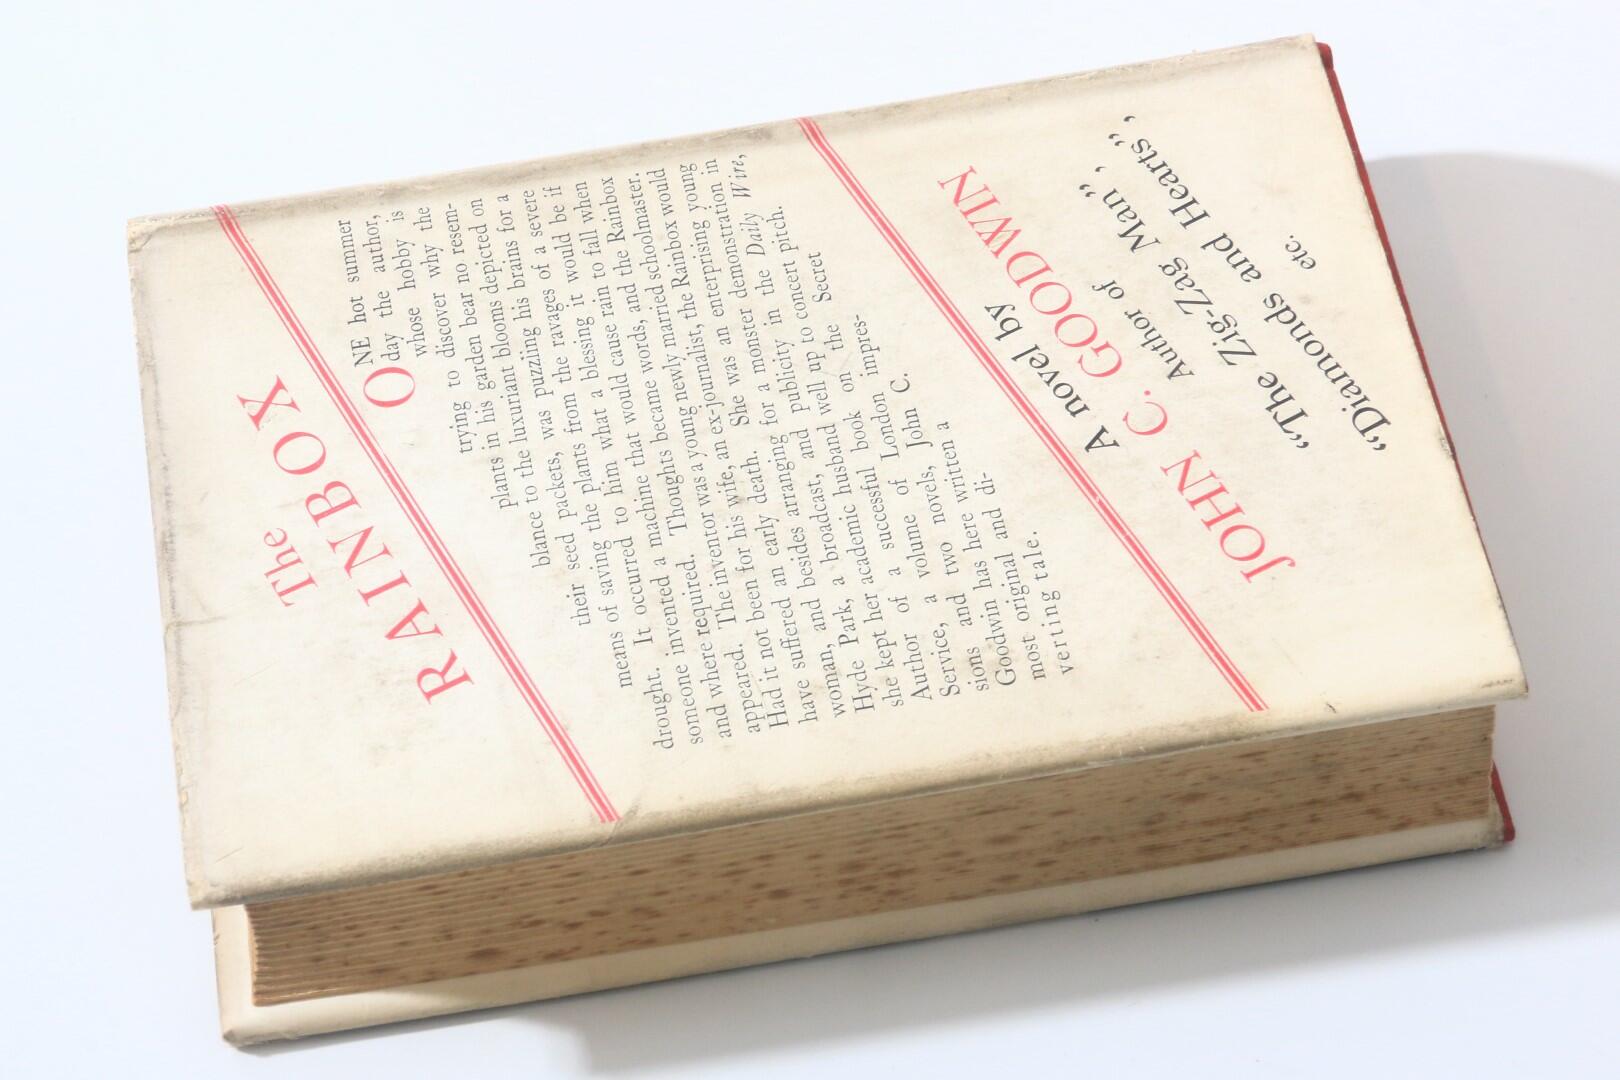 The
RAINBOX
ONE hot summer
day the author,
whose hobby is
trying to discover why the
plants in his garden bear no resem-
blance to the luxuriant blooms depicted on
their seed packets, was puzzling his brains for a
means of saving the plants from the ravages of a severe
drought. It occurred to him what a blessing it would be if
someone invented a machine that would cause rain to fall when
and where required. Thoughts became words, and the Rainbox
appeared. The inventor was a young newly married schoolmaster.
Had it not been for his wife, an ex-journalist, the Rainbox would
have suffered an early death. She was an enterprising young
woman, and besides arranging for a monster demonstration in
Hyde Park, a broadcast, and publicity in the Daily Wire,
she kept her academic husband well up to concert pitch.
Author of a successful book on the Secret
Service, a volume of London impres-
sions and two novels, John C.
Goodwin has here written a
most original and di-
verting tale.
A novel by
JOHN C. GOODWIN
Author of
“The Zig-Zag Man”,
“Diamonds and Hearts”,
etc.